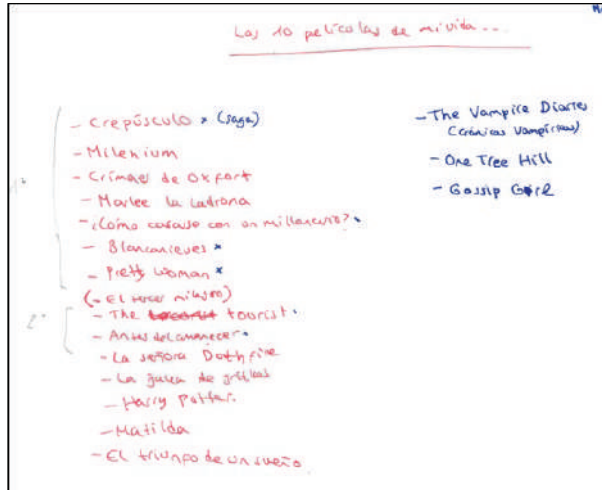 Las 10 películas de mi vida...
- Crepúsculo * (saga)
- Milenium
- Crímenes de Oxfort
- Marlee la ladrona
- ¿Cómo casarse con un millonario?
- Blancanieves *
- Pretty Woman *
(- El tercer milagro)
- The tourist
- Antes del amanecer
- La señora Dothfire
- La jaula de grillos
- Harry Potter.
- Matilda
- El triunfo de un sueño.
1º
2º
- The Vampire Diaries
(Crónicas Vampíricas)
- One Tree Hill
- Gossip Girl